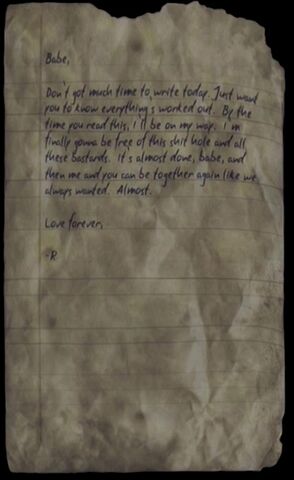 Babe,
Don't got much time to write today. Just want
you to know everything's worked out. By the
time you read this, i'll be on my way. I'm
finally gonna be free of this shit hole and all
these bastards. it's almost done, babe, and
then me and you can be together again like we
always wanted. Almost.
Love forever,
-R